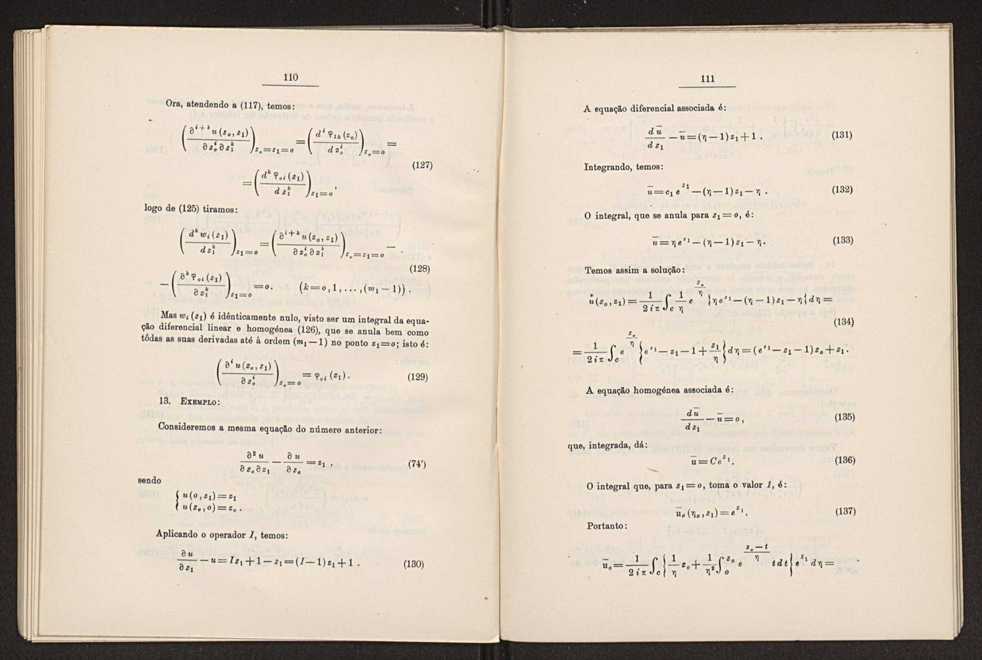 110
Ora, atendendo a (117), temos:
(∂^{i+k} u(z_o, z_1) / ∂z_o^i ∂z_1^k)_{z_o=z_1=o} = (d^i φ_{1k}(z_o) / d z_o^i)_{z_o=o} =
(127)
= (d^k φ_{oi}(z_1) / d z_1^k)_{z_1=o},
logo de (125) tiramos:
(d^k w_i(z_1) / d z_1^k)_{z_1=o} = (∂^{i+k} u(z_o, z_1) / ∂z_o^i ∂z_1^k)_{z_o=z_1=o} —
(128)
— (∂^k φ_{oi}(z_1) / ∂z_1^k)_{z_1=o} = o. (k=o, 1, ..., (m_1—1)).
Mas w_i(z_1) é idênticamente nulo, visto ser um integral da equa-
ção diferencial linear e homogénea (126), que se anula bem como
tôdas as suas derivadas até à ordem (m_1—1) no ponto z_1=o; isto é:
(∂^i u(z_o, z_1) / ∂z_o^i)_{z_o=o} = φ_{oi}(z_1). (129)
13. EXEMPLO:
Consideremos a mesma equação do número anterior:
∂² u / ∂z_o ∂z_1 — ∂u / ∂z_o = z_1, (74')
sendo
{ u(o, z_1) = z_1
{ u(z_o, o) = z_o.
Aplicando o operador I, temos:
∂u / ∂z_1 — u = Iz_1 + 1 — z_1 = (I—1)z_1 + 1. (130)
111
A equação diferencial associada é:
d u̅ / d z_1 — u̅ = (η—1)z_1 + 1. (131)
Integrando, temos:
u̅ = c_1 e^{z_1} — (η—1)z_1 — η. (132)
O integral, que se anula para z_1=o, é:
u̅ = η e^{z_1} — (η—1)z_1 — η. (133)
Temos assim a solução:
ů(z_o, z_1) = 1/(2iπ) ∫_c 1/η e^{z_o/η} {η e^{z_1} — (η—1)z_1 — η{ dη =
(134)
= 1/(2iπ) ∫_c e^{z_o/η} {e^{z_1} — z_1 — 1 + z_1/η} dη = (e^{z_1} — z_1 — 1)z_o + z_1.
A equação homogénea associada é:
d u̅ / d z_1 — u̅ = o, (135)
que, integrada, dá:
u̅ = C e^{z_1}. (136)
O integral que, para z_1=o, toma o valor 1, é:
u̅_o(η_o, z_1) = e^{z_1}. (137)
Portanto:
u̅_o = 1/(2iπ) ∫_c {1/η z_o + 1/η² ∫_o^{z_o} e^{(z_o—t)/η} t dt{ e^{z_1} dη =